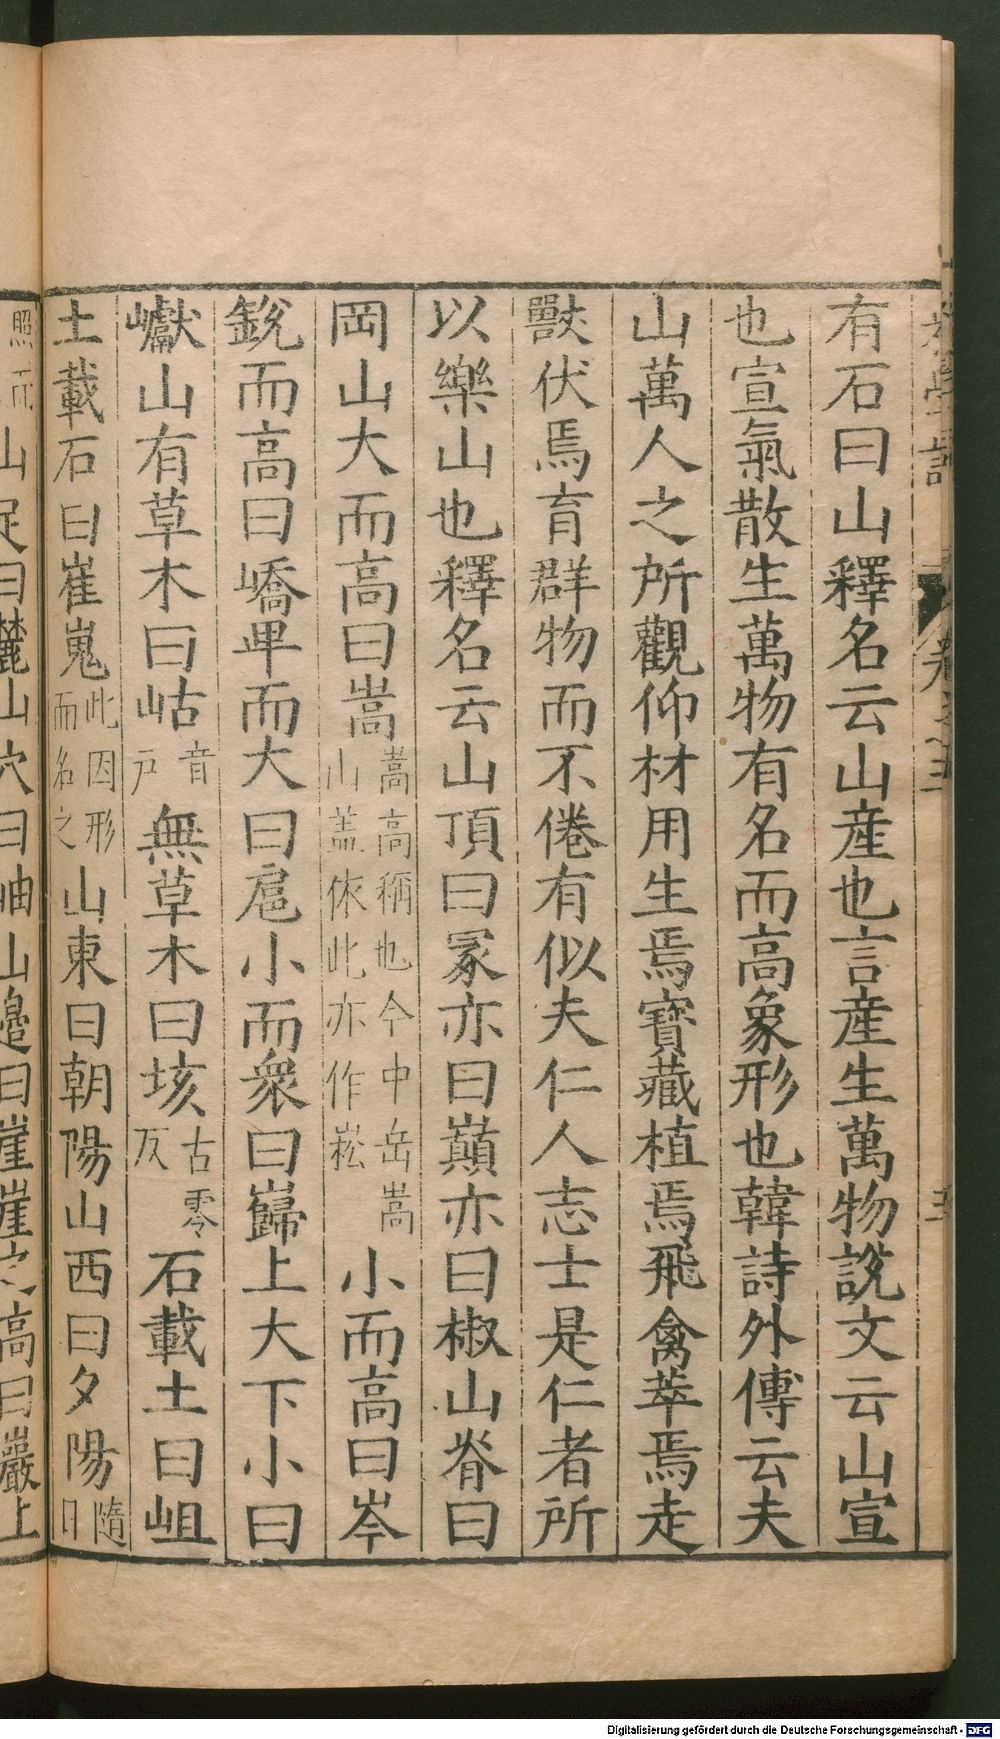 有石曰山釋名云山産也言産生萬物說文云山宣
也宣氣散生萬物有名而高象形也韓詩外傳云夫
山萬人之所觀仰材用生焉寶藏植焉飛禽萃焉走
獸伏焉育群物而不倦有似夫仁人志士是仁者所
以樂山也釋名云山頂曰冢亦曰巔亦曰椒山脊曰
岡山大而高曰嵩嵩高稱也今中岳嵩山盖依此亦作崧小而高曰岑
銳而高曰嶠卑而大曰扈小而衆曰巋上大下小曰
巘山有草木曰岵音戸無草木曰垓古零反石載土曰岨
土載石曰崔嵬此因形而名之山東曰朝陽山西曰夕陽隋日
照而山足曰麓山穴曰岫山邊曰崖崖之高曰巖上
Digitalisierung gefördert durch die Deutsche Forschungsgemeinschaft - DFG